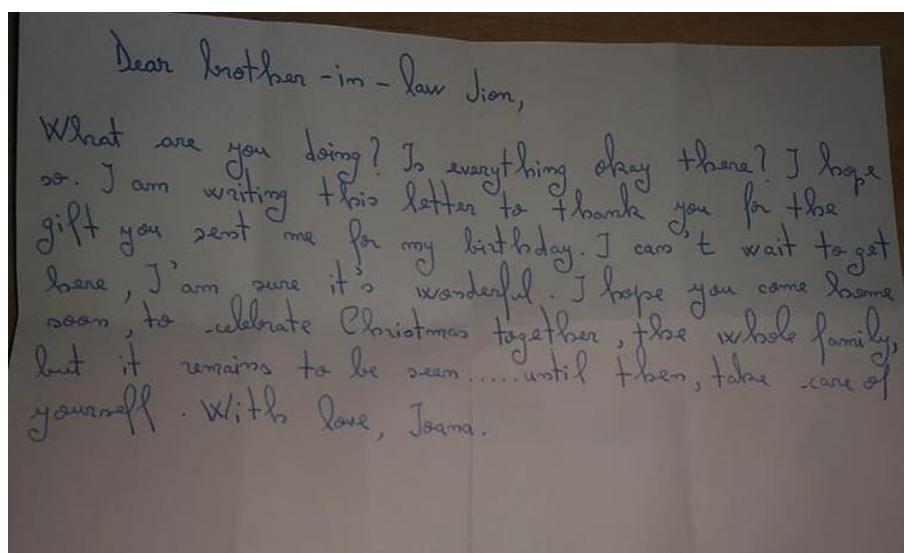 Dear brother-in-law Jion,
What are you doing? Is everything okay there? I hope
so. I am writing this letter to thank you for the
gift you sent me for my birthday. I can't wait to get
here, I'am sure it's wonderful. I hope you come home
soon, to celebrate Christmas together, the whole family,
but it remains to be seen.....until then, take care of
yourself. With love, Ioana.